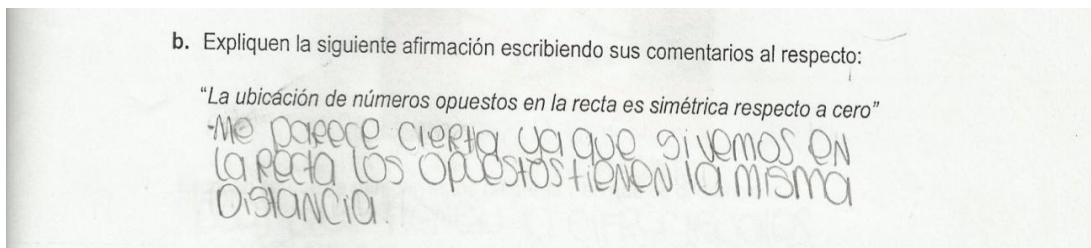 b. Expliquen la siguiente afirmación escribiendo sus comentarios al respecto:
“La ubicación de números opuestos en la recta es simétrica respecto a cero”
-Me parece cierta ya que si vemos en
la recta los opuestos tienen la misma
Distancia.